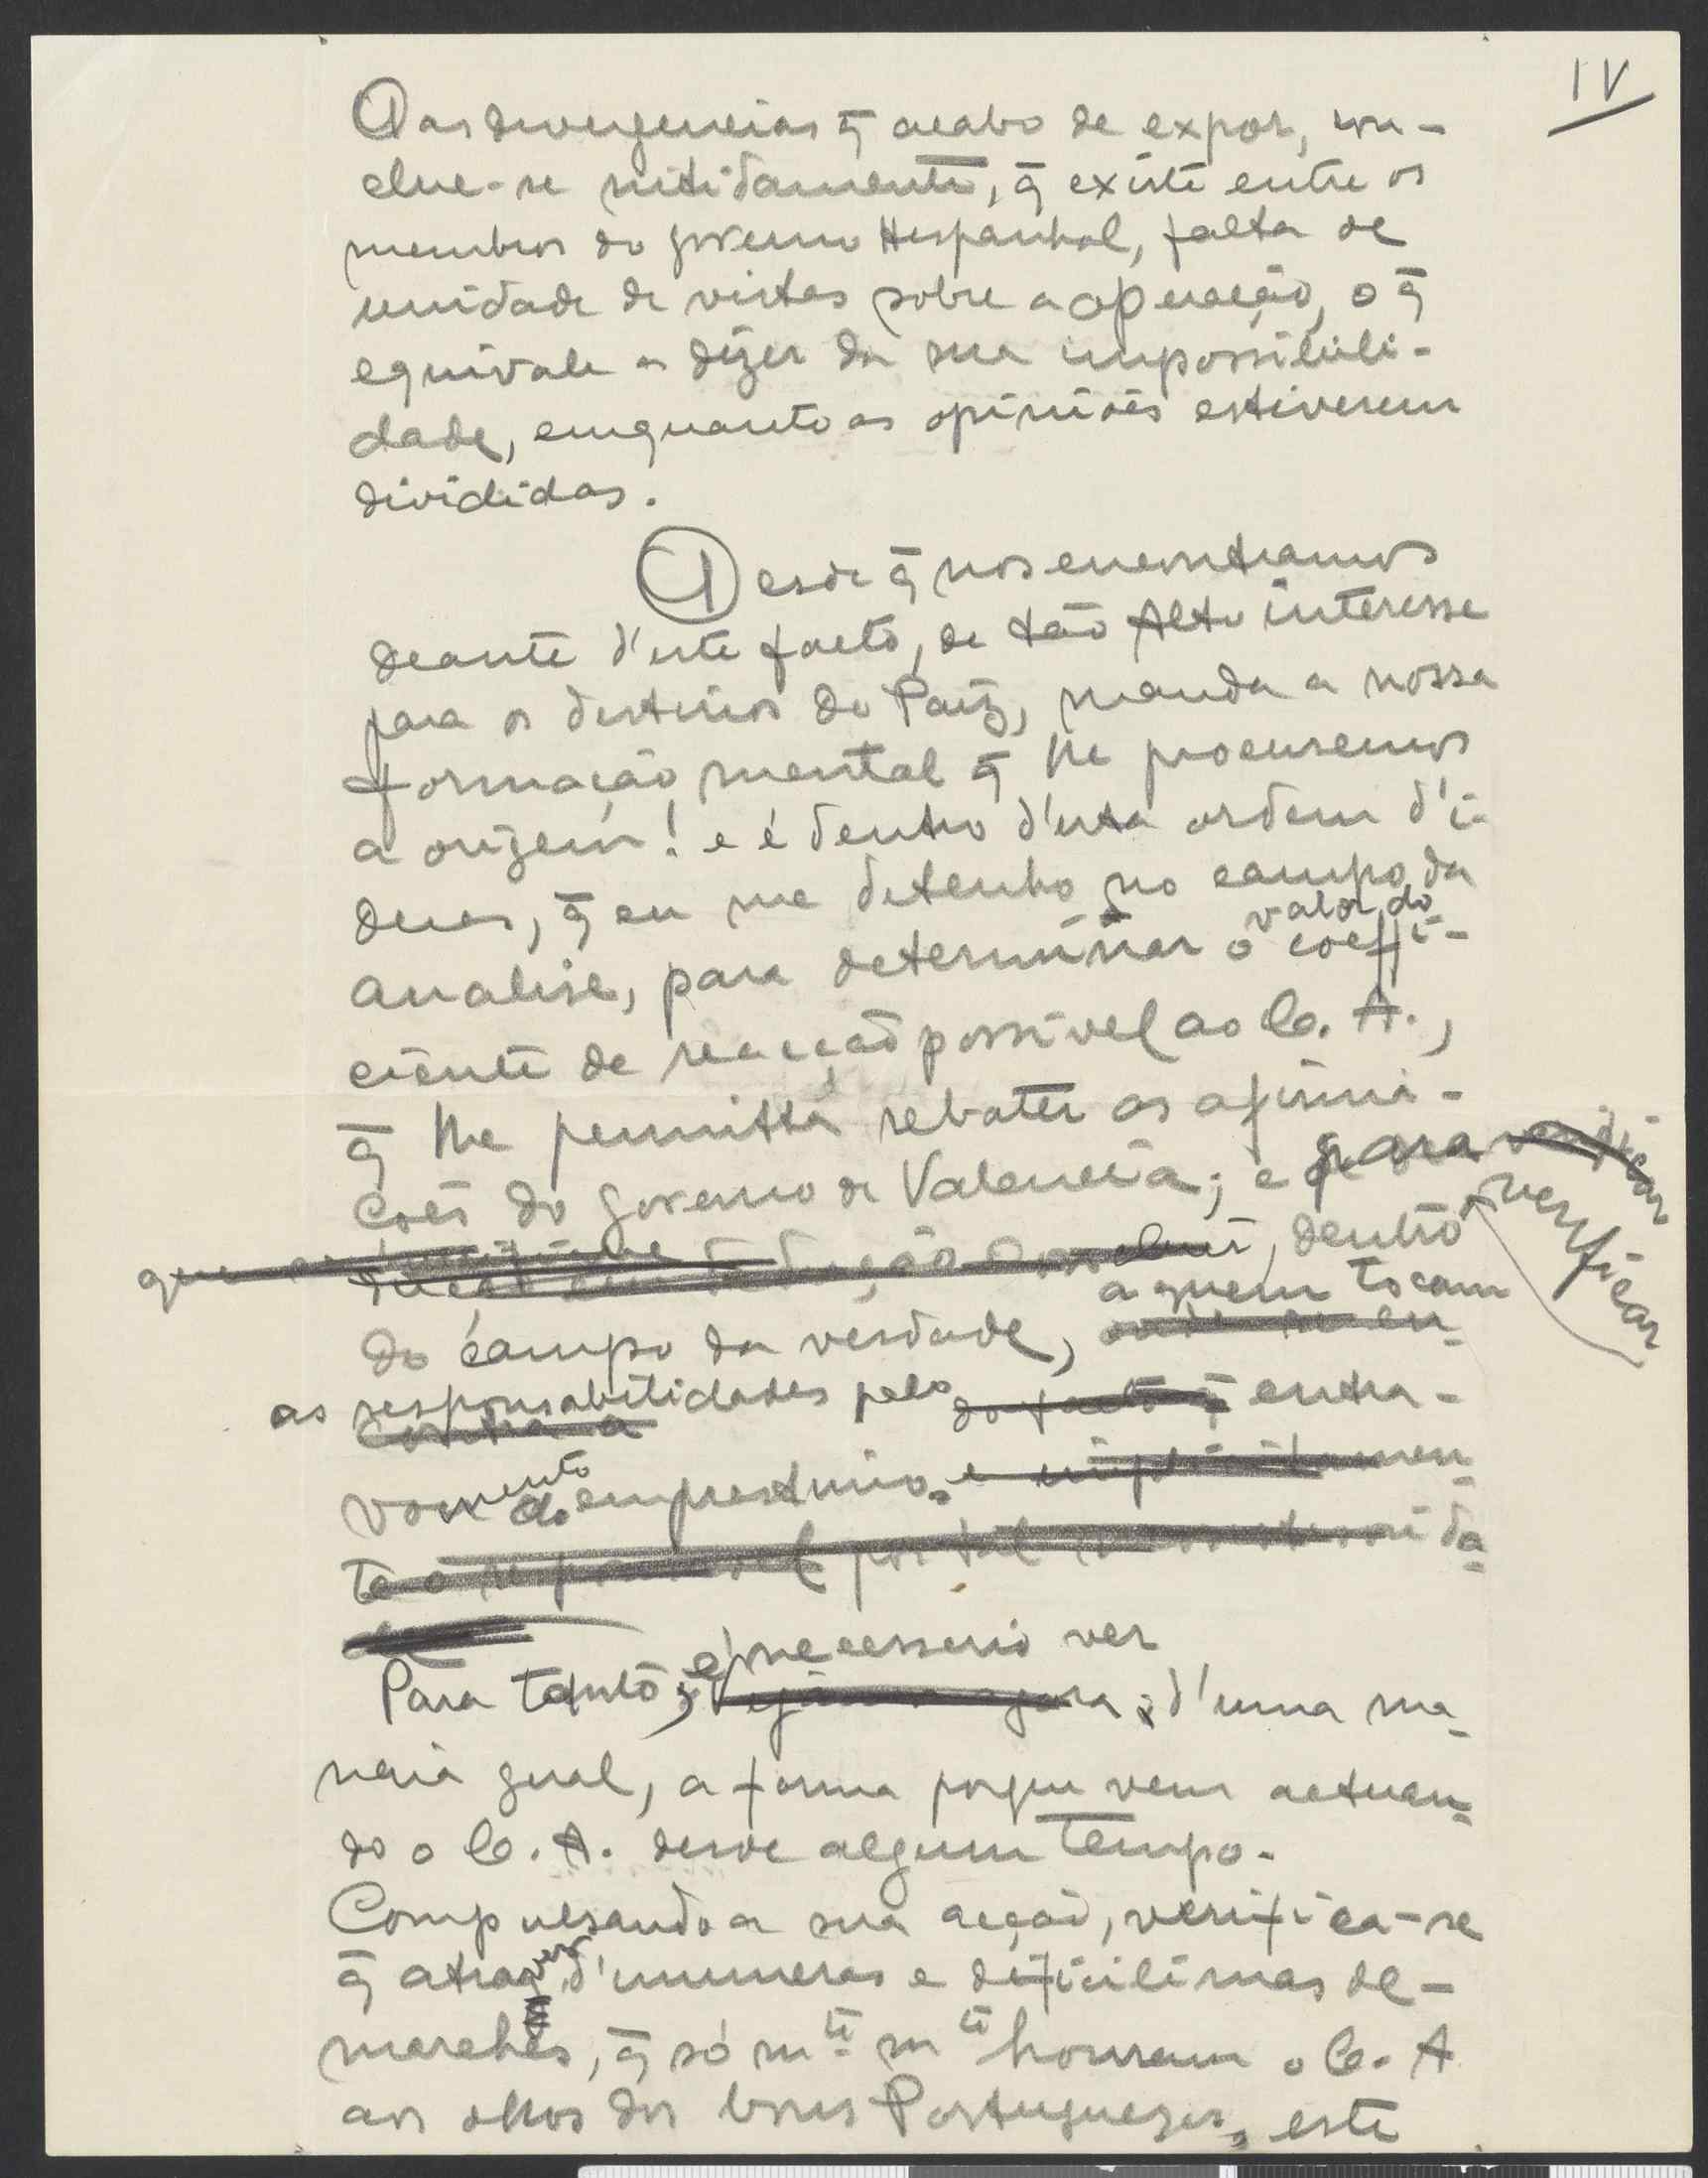 IV
Das divergencias q̄ acabo de expor, con-
clue-se nitidamente, q̄ existe entre os
membros do governo Hespanhol, falta de
unidade de vistas sobre a operação, o q̄
equivale a dizer da sua impossibili-
dade, emquanto as opiniões estiverem
divididas.
Desde q̄ nos encontramos
deante d'este facto, de tão Alto interesse
para os destinos do Paiz, manda a nossa
formação mental q̄ lhe procuremos
a origem! e é dentro d'esta ordem d'i-
deas, q̄ eu me detenho no campo da
valor do
analise, para determinar o coeffi-
ciente de reacção possivel ao C. A.,
q̄ lhe permitta rebater as afirma-
ções do governo de Valencia; e para
verificar
que , dentro
a quem tocam
do campo da verdade, onde se en-
as responsabilidades pelo do facto q̄ entra-
contra a
vamento do emprestimo. e implicitamen-
te o responsavel por tal
é necessario ver
Para tanto; Vejamos agora; d'uma ma-
neira geral, a forma porque vem actuan-
do o C. A. desde algum tempo.
Compulsando a sua acção, verifica-se
q̄ atravez d'inumeras e dificilimas de-
marches, q̄ só m.te m.te honram o C. A
aos olhos dos bons Portuguezes, este